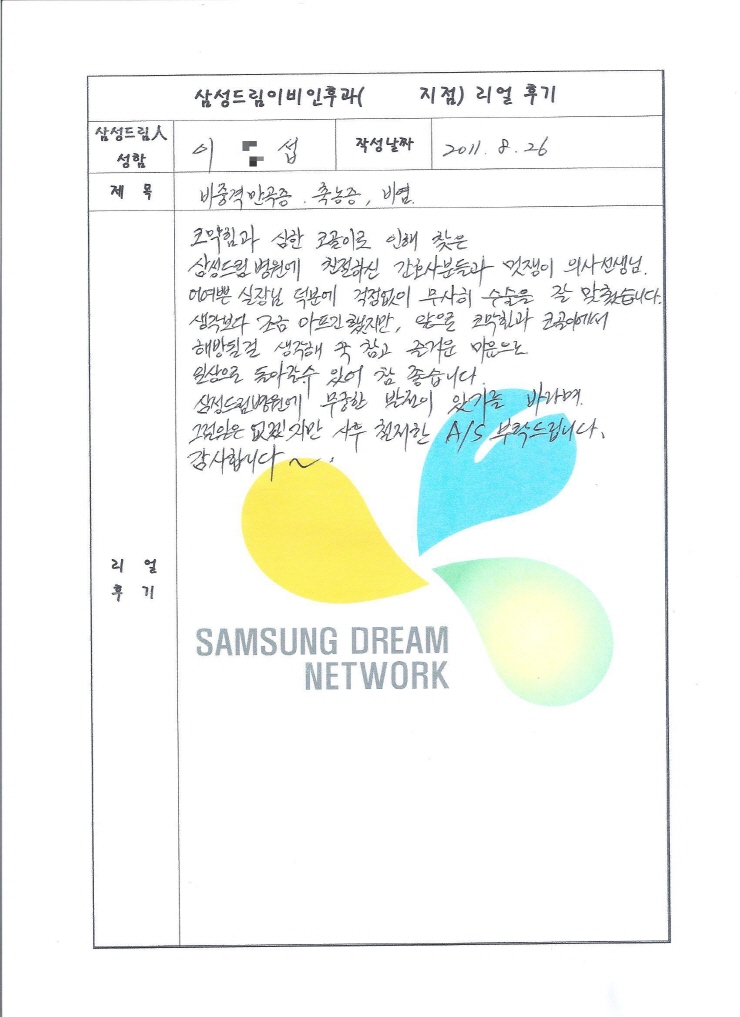 삼성드림이비인후과( 지점) 리얼 후기
삼성드림人 성함
이 섭
작성날짜
2011. 8. 26
제 목
비중격만곡증. 축농증, 비염.
코막힘과 심한 코골이로 인해 찾은
삼성드림병원에 친절하신 간호사분들과 멋쟁이 의사선생님.
어여쁜 실장님 덕분에 걱정없이 무사히 수술을 잘 맞췄습니다.
생각보다 조금 아프긴했지만, 앞으로 코막힘과 코골이에서
해방될걸 생각해 꾹 참고 즐거운 마음으로
일상으로 돌아갈수 있어 참 좋습니다.
삼성드림병원에 무궁한 발전이 있기를 바라며.
그럴일은 없겠지만 사후 철저한 A/S 부탁드립니다.
감사합니다~.
리 얼
후 기
SAMSUNG DREAM
NETWORK